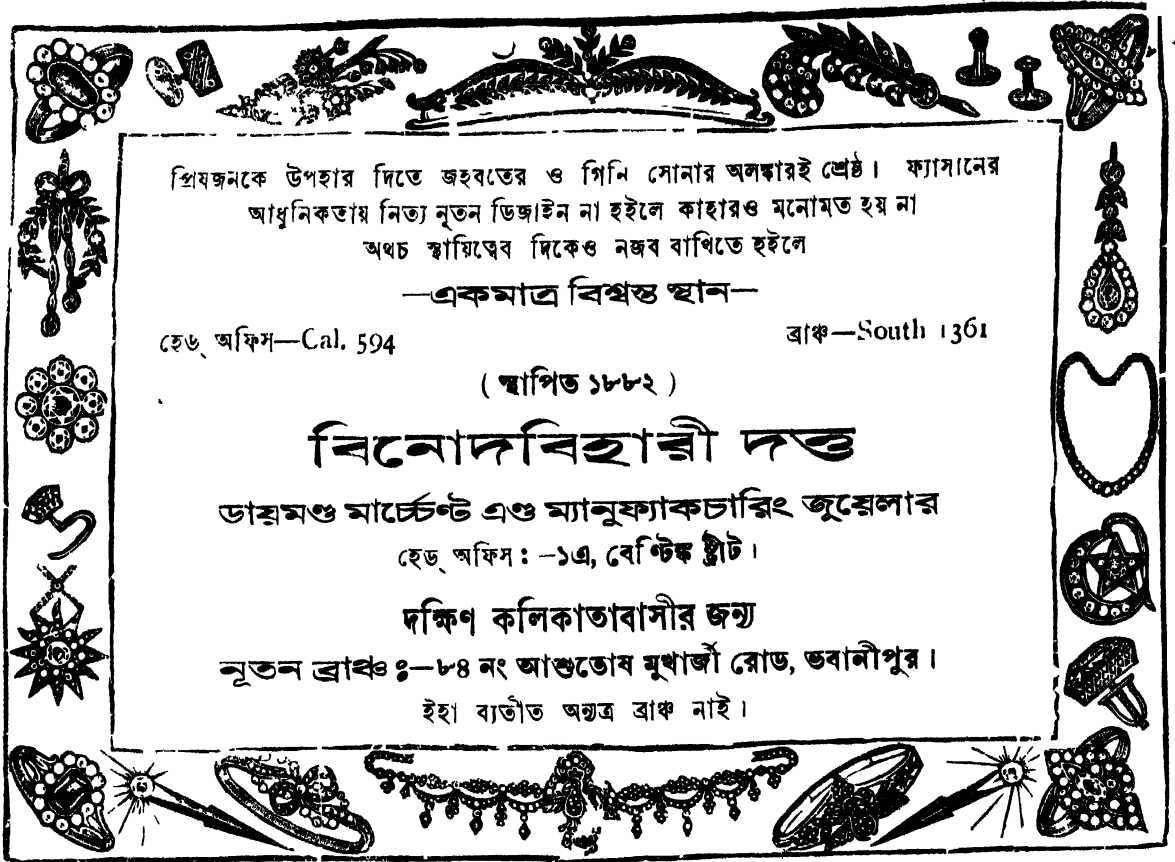 প্রিযজনকে উপহার দিতে জহবতের ও গিনি সোনার অলঙ্কারই শ্রেষ্ঠ। ফ্যাসানের
আধুনিকতায় নিত্য নূতন ডিজাইন না হইলে কাহারও মনোমত হয় না
অথচ স্থায়িত্বেব দিকেও নজব বাখিতে হইলে
—একমাত্র বিশ্বস্ত স্থান—
হেড্ অফিস—Cal. 594 ব্রাঞ্চ—South 1361
( স্থাপিত ১৮৮২ )
বিনোদবিহারী দত্ত
ডায়মণ্ড মার্চ্চেণ্ট এণ্ড ম্যানুফ্যাকচারিং জুয়েলার
হেড্ অফিস: -১এ, বেণ্টিঙ্ক ষ্ট্রীট।
দক্ষিণ কলিকাতাবাসীর জন্য
নূতন ব্রাঞ্চ :—৮৪ নং আশুতোষ মুখার্জী রোড, ভবানীপুর।
ইহা ব্যতীত অন্যত্র ব্রাঞ্চ নাই।